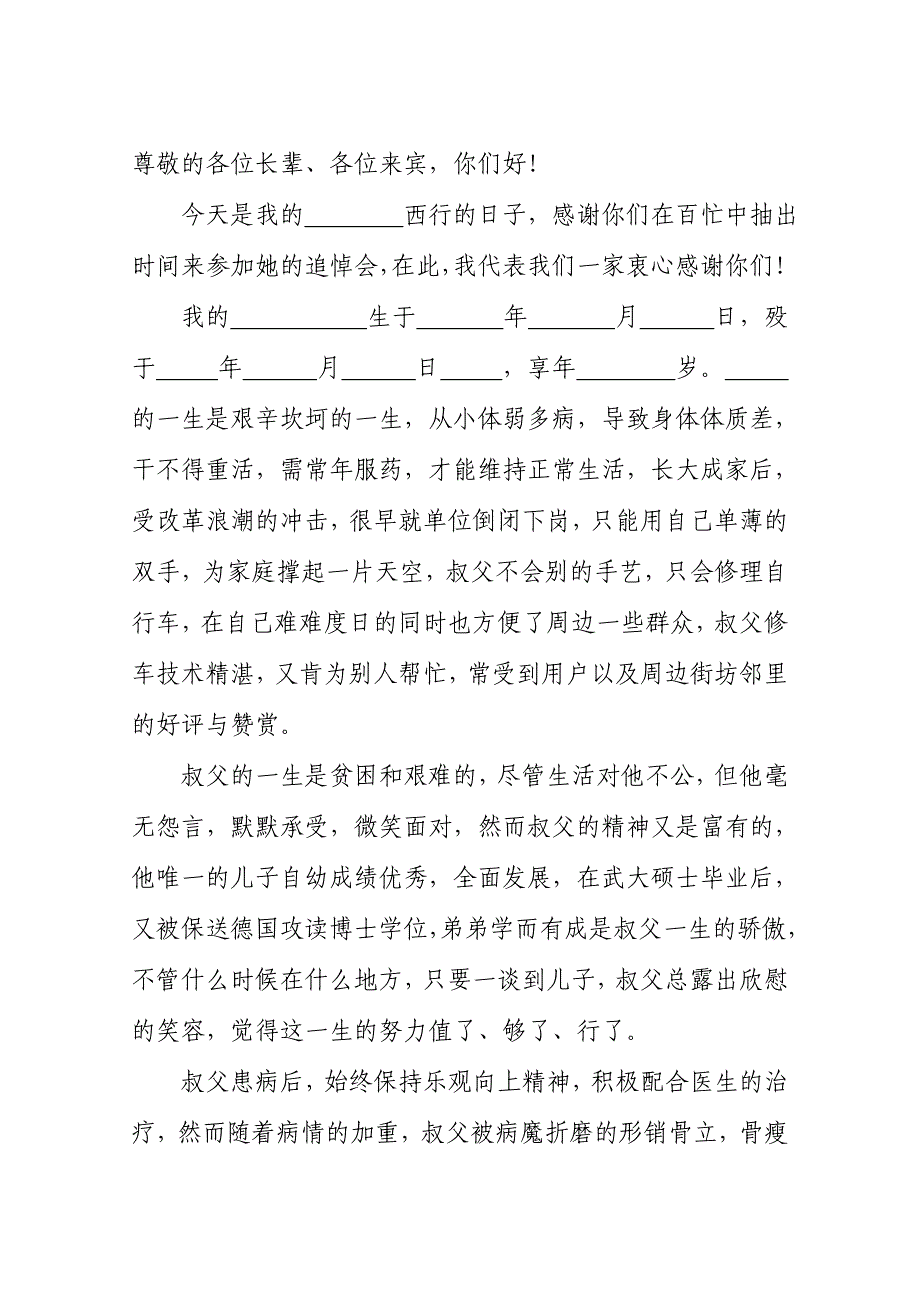 尊敬的各位长辈、各位来宾，你们好！
今天是我的________西行的日子，感谢你们在百忙中抽出
时间来参加她的追悼会，在此，我代表我们一家衷心感谢你们！
我的___________生于_______年_______月______日，殁
于_____年______月______日_____，享年________岁。_____
的一生是艰辛坎坷的一生，从小体弱多病，导致身体体质差，
干不得重活，需常年服药，才能维持正常生活，长大成家后，
受改革浪潮的冲击，很早就单位倒闭下岗，只能用自己单薄的
双手，为家庭撑起一片天空，叔父不会别的手艺，只会修理自
行车，在自己难难度日的同时也方便了周边一些群众，叔父修
车技术精湛，又肯为别人帮忙，常受到用户以及周边街坊邻里
的好评与赞赏。
叔父的一生是贫困和艰难的，尽管生活对他不公，但他毫
无怨言，默默承受，微笑面对，然而叔父的精神又是富有的，
他唯一的儿子自幼成绩优秀，全面发展，在武大硕士毕业后，
又被保送德国攻读博士学位，弟弟学而有成是叔父一生的骄傲，
不管什么时候在什么地方，只要一谈到儿子，叔父总露出欣慰
的笑容，觉得这一生的努力值了、够了、行了。
叔父患病后，始终保持乐观向上精神，积极配合医生的治
疗，然而随着病情的加重，叔父被病魔折磨的形销骨立，骨瘦